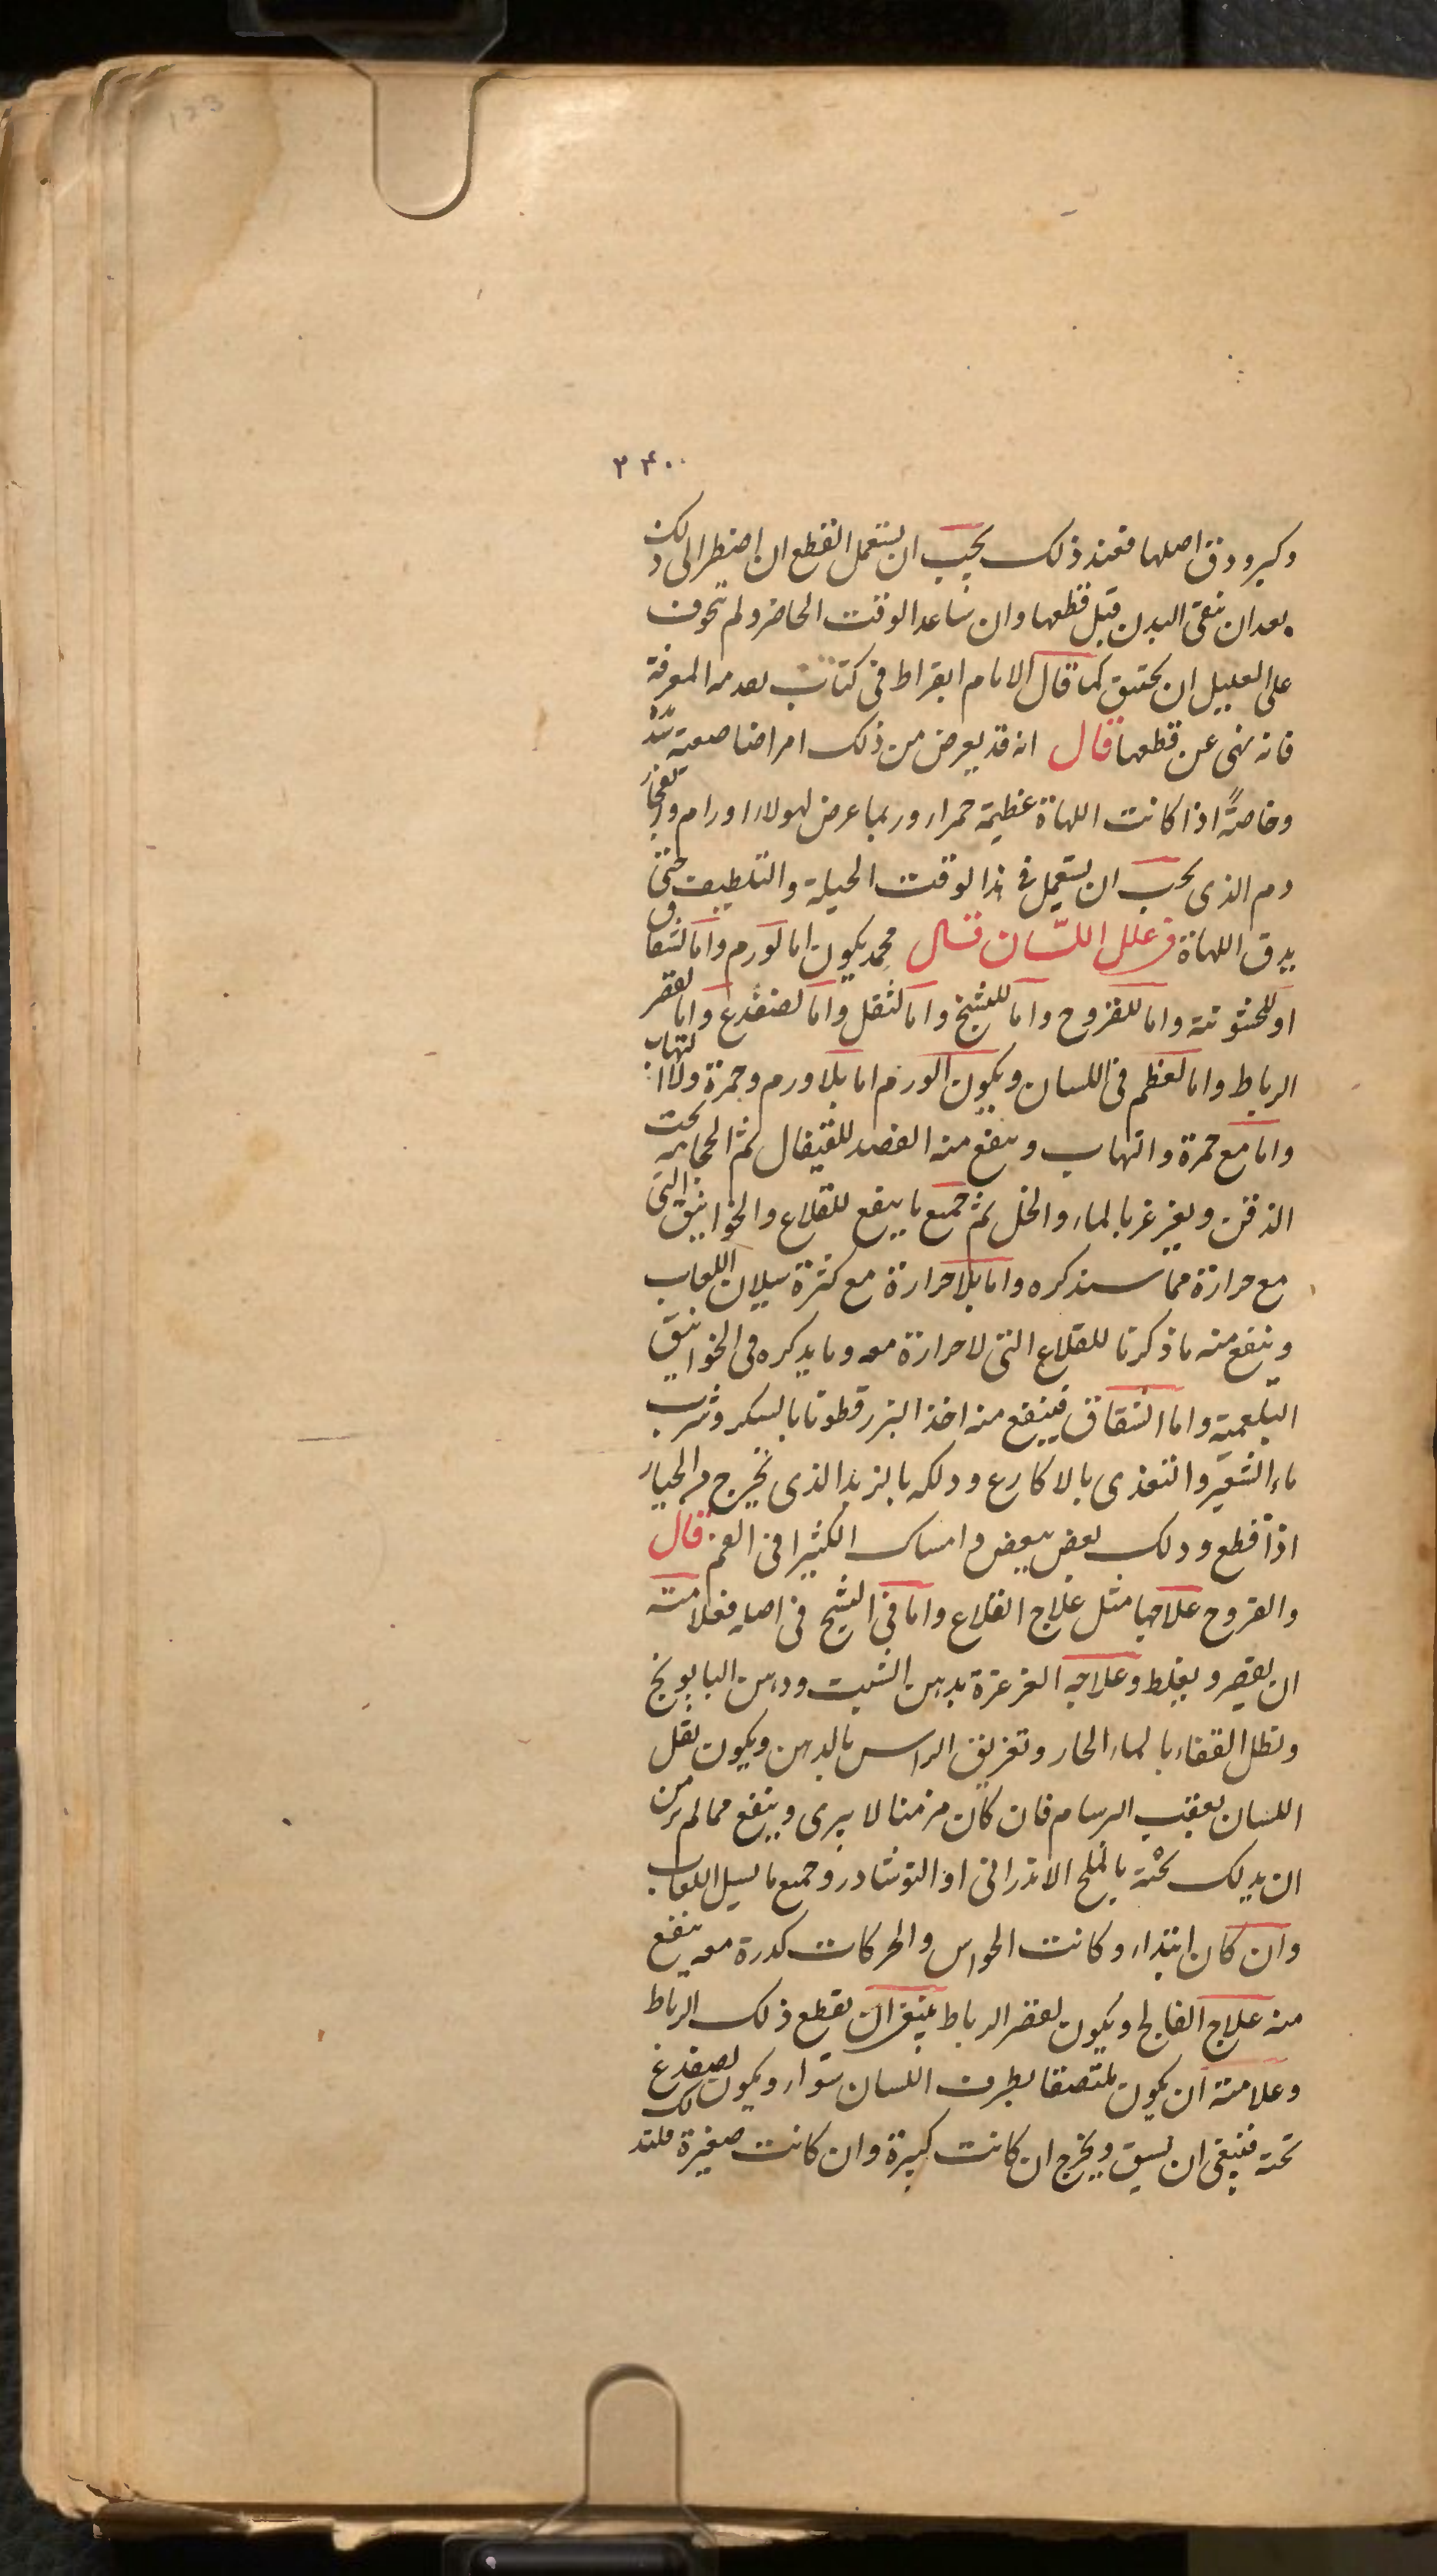 123
٢٤٠٠
وكبر ودق اصلها فعند ذلك يجب ان يستعمل القطع ان اضطر الى ذلك
بعد ان ينقى البدن قبل قطعها وان ساعد الوقت الحاضر ولم يتخوف
على العليل ان يختنق كما قال الامام ابقراط فى كتاب تقدمه المعرفة
فانه نهى عن قطعها قال انه قد يعرض من ذلك امراضا صعبة
وخاصةً اذا كانت اللهاة عظيمة حمراء وربما عرض لهولاء اورام وانفجار
دم الذى يجب ان يستعمل فى هذا الوقت الحيلة والتلطيف حتى
يدق اللهاة فى علل اللسان قال محمد يكون اما لورم واما لشقاق
او للخشونة واما للقروح واما للتشنج واما لثقل واما لضفدع واما لقصر
الرباط واما لعظم فى اللسان ويكون الورم اما بلا ورم وحمرة ولا التهاب
واما مع حمرة والتهاب وينفع منه الفصد للقيفال ثم الحجامه تحت
الذقن ويغرغر بالماء والخل ثم جميع ما ينفع للقلاع والخوانيق التى
مع حرارة مما سنذكره واما بلا حرارة مع كثرة سيلان اللعاب
وينفع منه ما ذكرنا للقلاع التى لا حرارة معه وما يذكره فى الخوانيق
البلغمية واما الشقاق فينفع منه اخذ البزر قطونا بالسكر وشرب
ماء الشعير والتغذى بالاكارع ودلكه بالزبد الذى يخرج من الخيار
اذا قطع ودلك بعض ببعض وامساك الكثيرا فى الفم قال
والقروح علاجها مثل علاج القلاع واما فى التشنج فى اصله فعلامته
ان يقصر ويغلط وعلاجه الغرغرة بدهن الشبت ودهن البابونج
ونطل القفاء بالماء الحار وتغريق الراس بالدهن ويكون ثقل
اللسان بعقب البرسام فان كان مزمنا لا يبرى وينفع مما لم يزمن
ان يدلك تحته بالملح الاندرانى او النوشادر وجميع ما يسيل اللعاب
وان كان ابتداء وكانت الحواس والحركات كدرة معه ينفع
منه علاج الفالج ويكون لقصر الرباط ينبغى ان يقطع ذلك الرباط
وعلامته ان يكون ملتصقا بطرف اللسان سواء ويكون لضفدع
تحته فينبغى ان يشق ويخرج ان كانت كبيرة وان كانت صغيرة فلتدلك